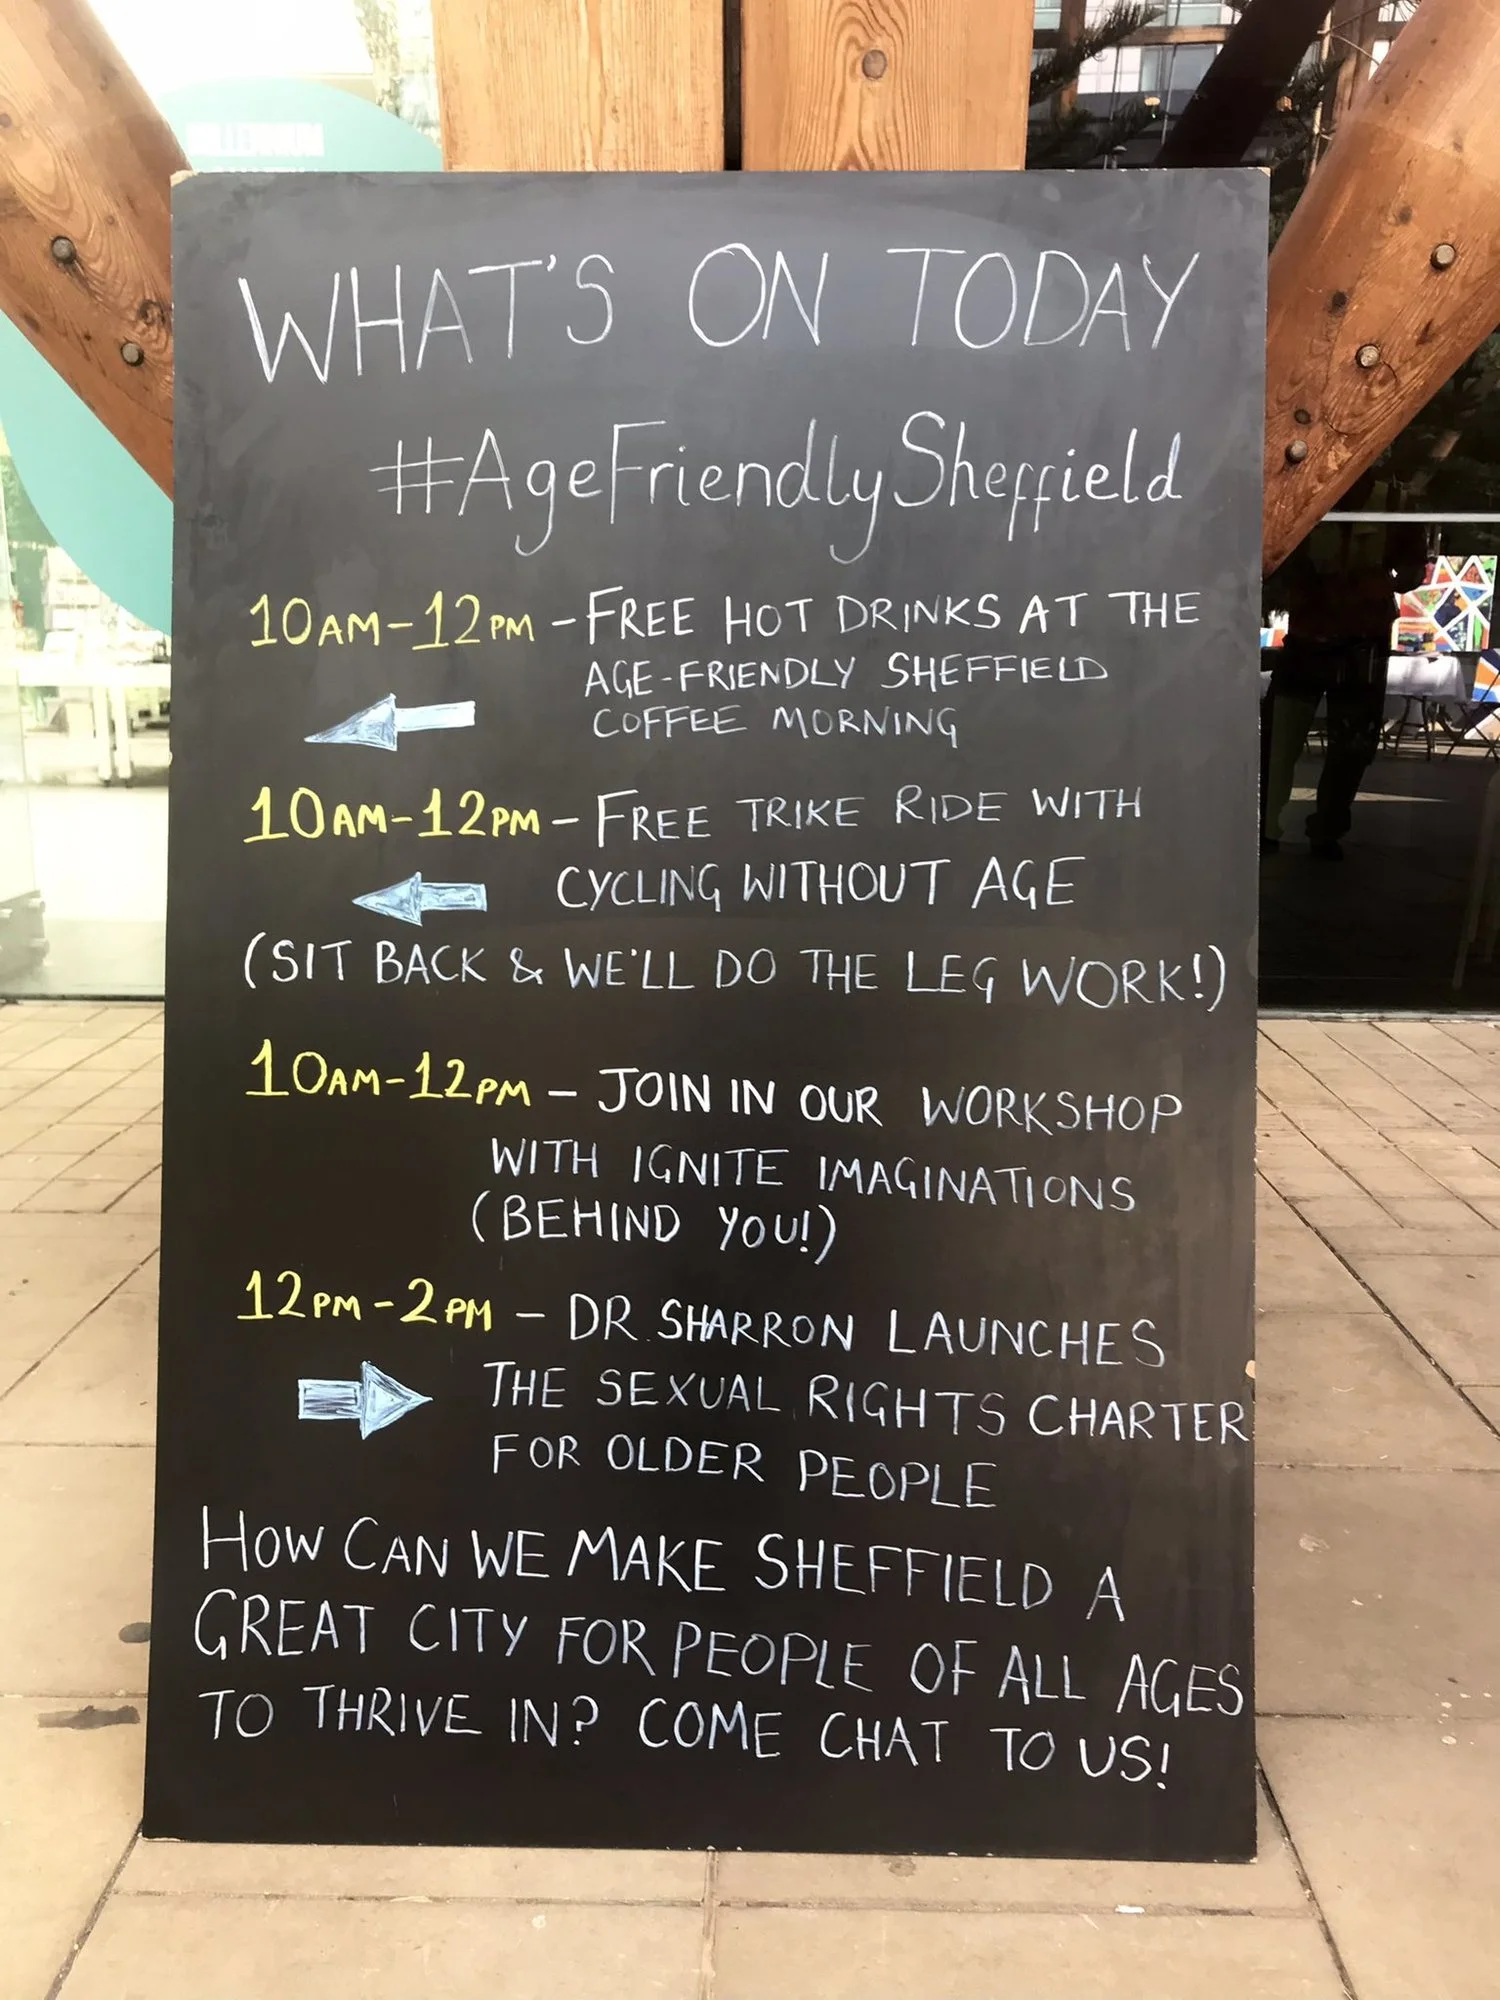 MILLENNIUM
WHAT'S ON TODAY
#AgeFriendlySheffield
10AM-12PM - FREE HOT DRINKS AT THE
AGE-FRIENDLY SHEFFIELD
COFFEE MORNING
10AM-12PM - FREE TRIKE RIDE WITH
CYCLING WITHOUT AGE
(SIT BACK & WE'LL DO THE LEG WORK!)
10AM-12PM - JOIN IN OUR WORKSHOP
WITH IGNITE IMAGINATIONS
(BEHIND YOU!)
12PM-2PM - DR. SHARRON LAUNCHES
THE SEXUAL RIGHTS CHARTER
FOR OLDER PEOPLE
HOW CAN WE MAKE SHEFFIELD A
GREAT CITY FOR PEOPLE OF ALL AGES
TO THRIVE IN? COME CHAT TO US!